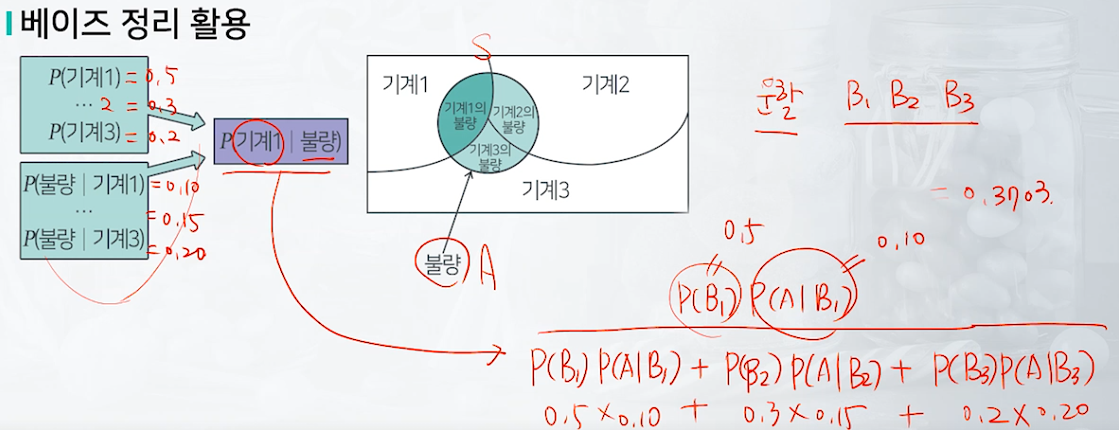 베이즈 정리 활용
P(기계1) = 0.5
… 2 = 0.3
P(기계3) = 0.2
P(불량 | 기계1) = 0.10
… = 0.15
P(불량 | 기계3) = 0.20
P(기계1 | 불량)
S
기계1
기계2
기계1의
불량
기계2의
불량
기계3의
불량
기계3
불량 A
B₁ B₂ B₃
= 0.3703.
0.5
0.10
P(B₁) P(A|B₁)
P(B₁) P(A|B₁) + P(B₂) P(A|B₂) + P(B₃)P(A|B₃)
0.5 × 0.10 + 0.3 × 0.15 + 0.2 × 0.20